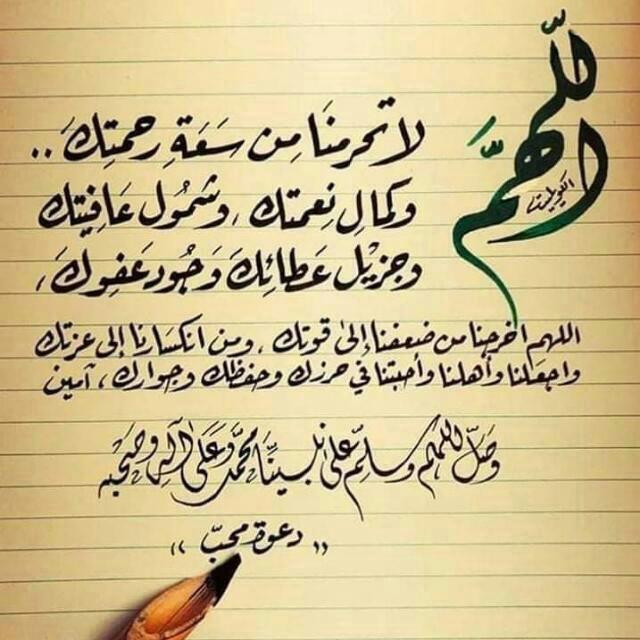 اللّهمّ
لا تحرمنَا مِن سَعَةِ رحمتِكَ ..
وكمالِ نِعمتك ، وشمُول عَافِيتك
وجزيْل عَطائِكَ وَجُود عَفوِكَ ،
اللهم أخرجنا من ضعفنا إلى قوتك ، ومن انكسَارنا إلى عزتك
واجعَلنا وأهلنا وأحبتنا في حرزك وحفظك وجوارك ، آمين
وَصَلِّ اللهم وسلِّم على نبيِّنَا محمّد وعَلى آله وصَحبِه
" دعوة محبّ "